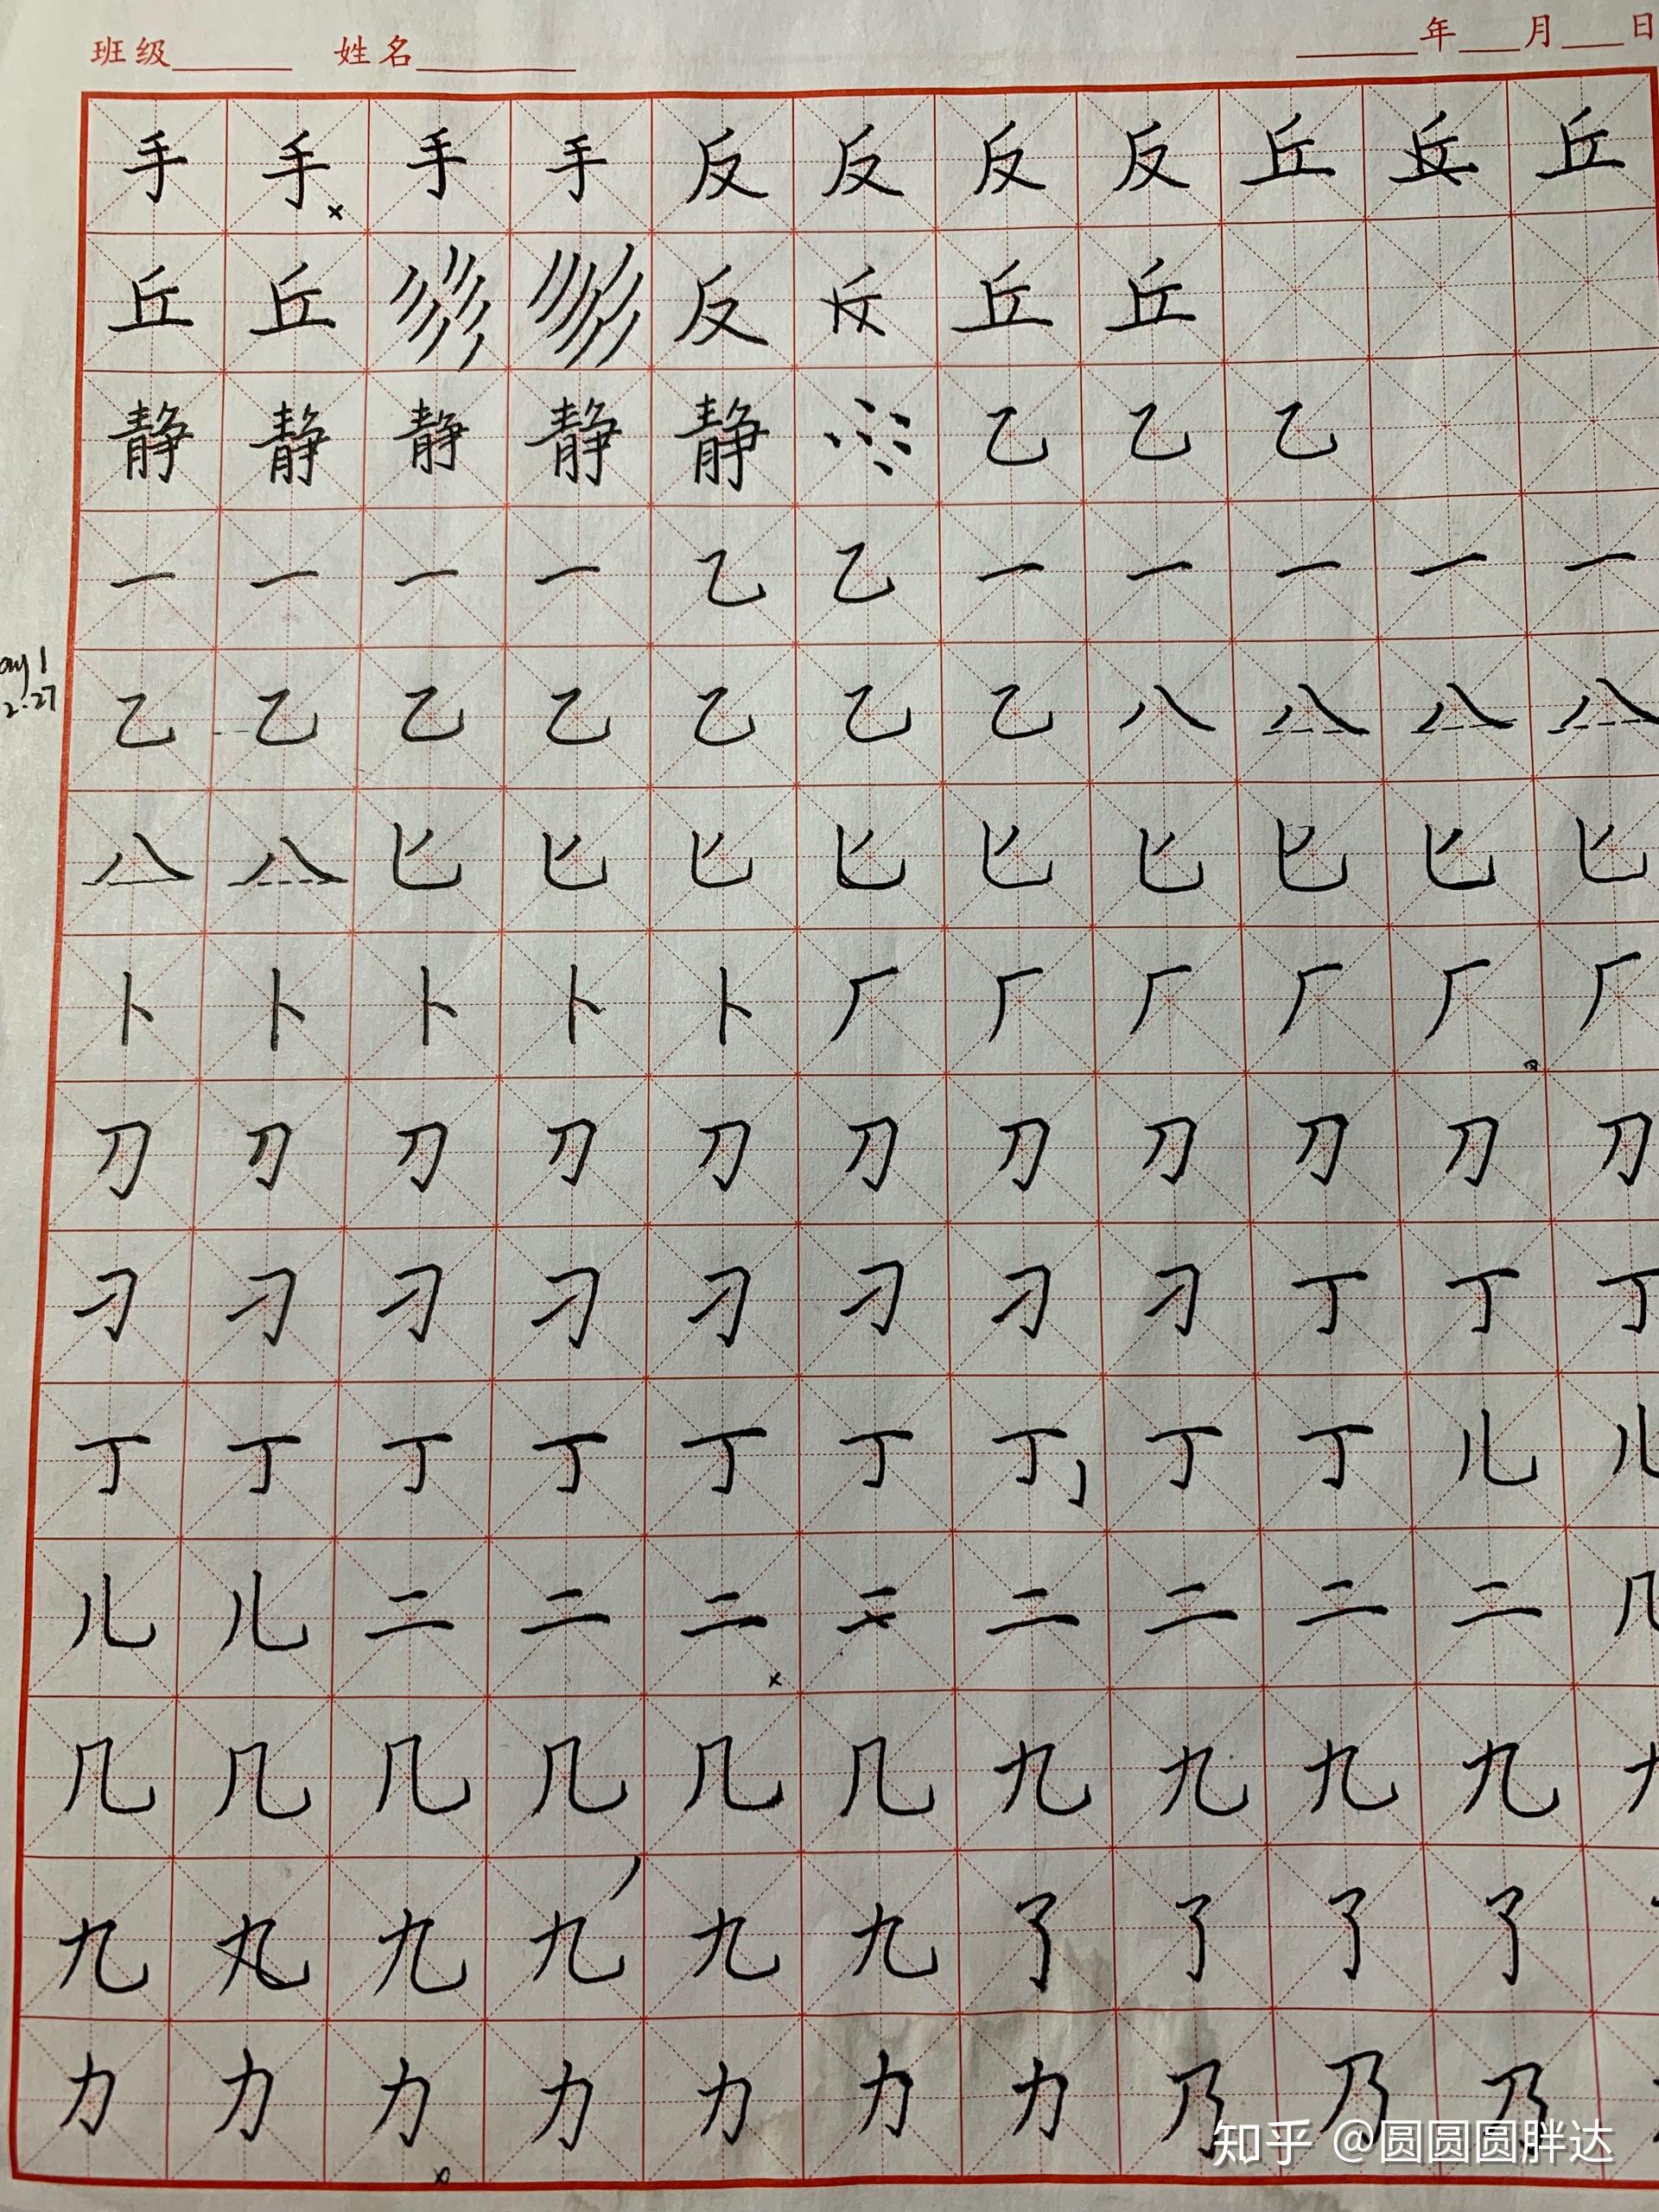 班级 姓名 年 月 日
手 手 手 手 反 反 反 反 丘 丘
丘 丘 反 丘 丘
静 静 静 静 静 乙 乙 乙
一 一 一 一 乙 乙 一 一 一 一 一
ay 1
2.27
乙 乙 乙 乙 乙 乙 乙 八 八 八 八
八 八 匕 匕 匕 匕 匕 匕 匕 匕 匕
卜 卜 卜 卜 卜 厂 厂 厂 厂 厂 厂
刀 刀 刀 刀 刀 刀 刀 刀 刀 刀 刀
刁 刁 刁 刁 刁 刁 刁 刁 丁 丁 丁
丁 丁 丁 丁 丁 丁 丁 丁 丁 儿 儿
儿 儿 二 二 二 二 二 二 二 几
几 几 几 几 几 几 九 九 九 九
九 九 九 九 九 九 了 了 了 了
力 力 力 力 力 力 力 乃 乃 乃
知乎 @圆圆圆胖达